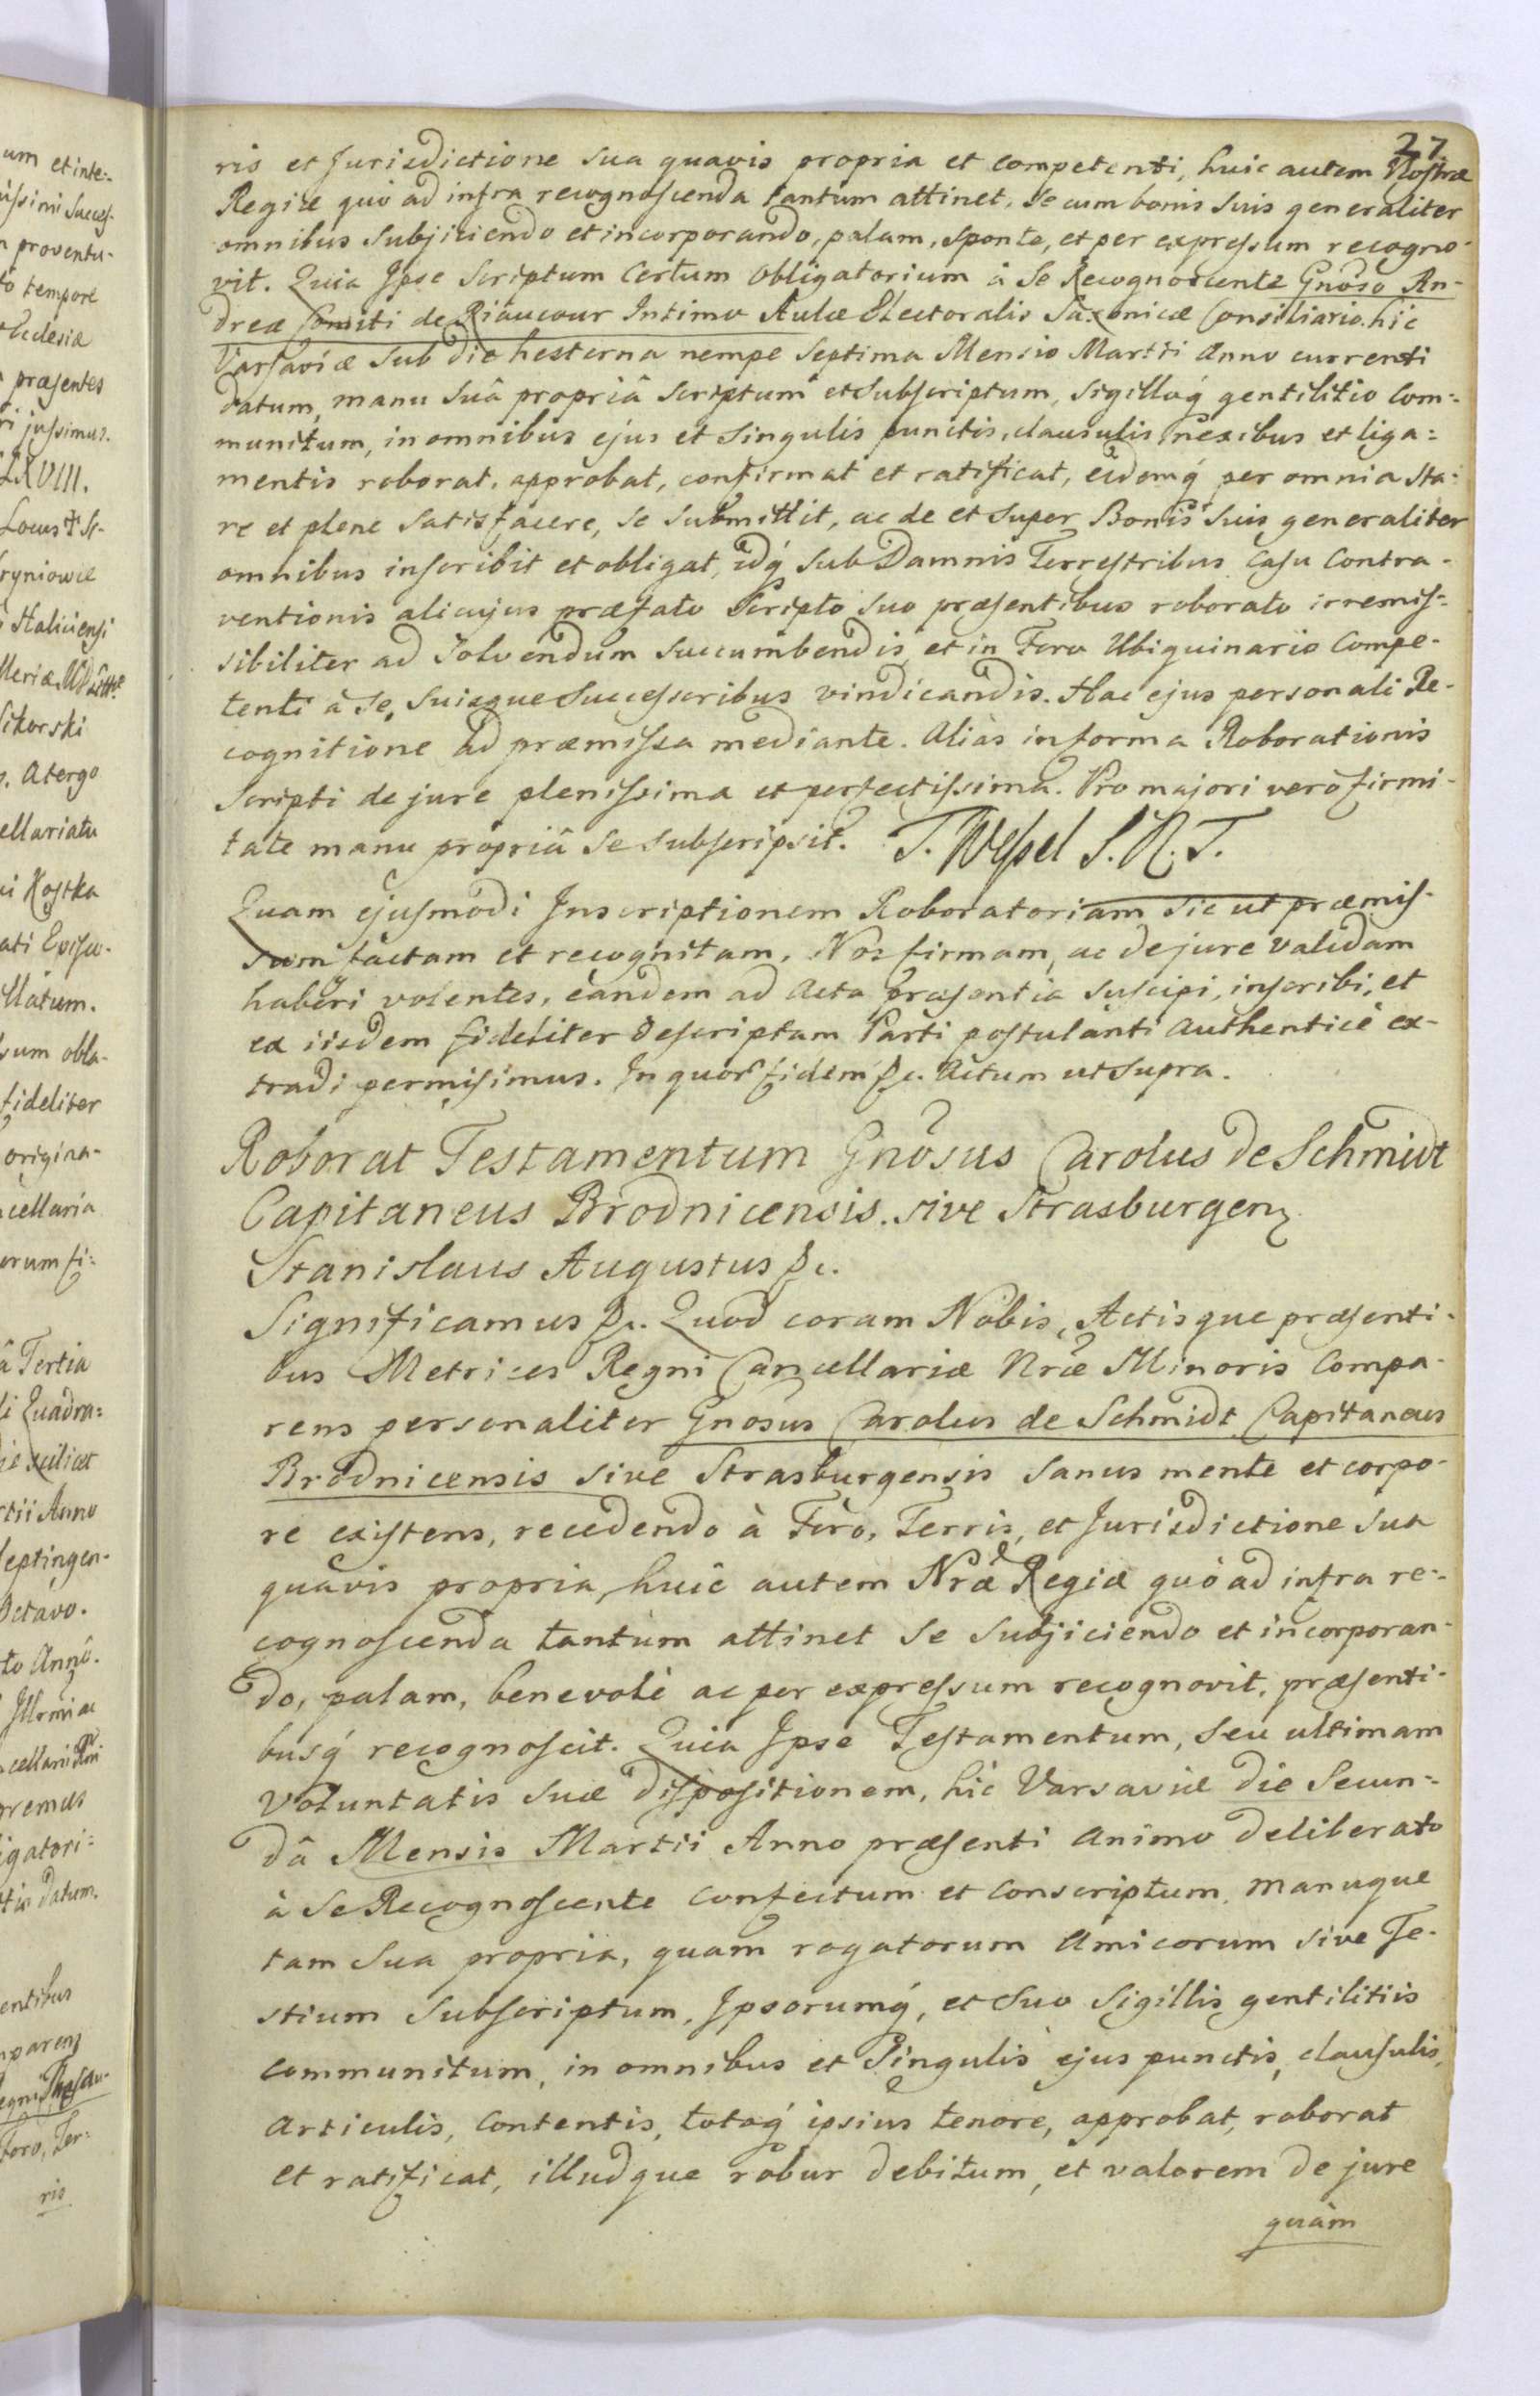 27
ris et Jurisdictione sua quavis propria et competenti, huic autem Nostræ
Regiæ quò ad infra recognoscenda tantum attinet, se cum bonis suis generaliter
omnibus subjiciendo et incorporando, palam, sponte, et per expressum recogno-
vit. Quia Ipse Scriptum Certum Obligatorium à se Recognoscente Gnoso An-
dreæ Comiti de Riaucour Intimo Aulæ Electoralis Saxonicæ Consiliario hic
Varsaviæ sub die hesterna nempe Septima Mensis Martii Anno currenti
datum, manu suâ propriâ scriptum et subscriptum, sigilloq́ gentilitio com:
munitum, in omnibus ejus et singulis punctis, clausulis nexibus et liga:
mentis roborat, approbat, confirmat et ratificat, eidemq́ per omnia sta:
re et plene satisfacere, se submittit, ac de et super Bonis suis generaliter
omnibus inscribit et obligat, idq́ sub Damnis Terrestribus casu contra-
ventionis alicujus præfato Scripto suo præsentibus roborato irremis-
sibiliter ad solvendum succumbendis, et in Foro Ubiquinario Compe-
tenti à se, suisque Successoribus vindicandis. Hac ejus personali Re-
cognitione ad præmissa mediante. Aliàs in forma Roborationis
Scripti de jure plenissima et perfectissima. Pro majori verò firmi-
tate manu propriâ se subscripsit. T. Wessel S. R. T.
Quam ejusmodi Inscriptionem Roboratoriam sic ut præmis-
sum factam et recognitam, Nos firmam, ac de jure validam
haberi volentes, eandem ad Acta præsentia suscipi, inscribi, et
ex iisdem fideliter descriptam Parti postulanti authenticè ex-
tradi permisimus. In quor̃ fidem &c. Actum ut supra.
Roborat Testamentum Gnosus Carolus de Schmidt
Capitaneus Brodnicensis. sive Strasburgenȝ
Stanislaus Augustus &c.
Significamus &c. Quod coram Nobis, Actisque præsenti-
bus Metrices Regni Cancellariæ Nræ Minoris compa-
rens personaliter Gnosus Carolus de Schmidt Capitaneus
Brodnicensis sive Strasburgensis sanus mente et corpo-
re existens, recedendo à Foro, Terris, et Jurisdictione sua
quavis propria, huic autem Nræ Regiæ quò ad infra re-
cognoscenda tantum attinet se subjiciendo et incorporan-
do, palam, benevolè ac per expressum recognovit, præsenti-
busq́ recognoscit. Quia Ipse Testamentum, seu ultimam
Voluntatis suæ dispositionem, hic Varsaviæ die Secun-
dâ Mensis Martii Anno præsenti animo deliberato
à se Recognoscente confectum et conscriptum, manuque
tam sua propria, quam rogatorum Amicorum sive Te-
stium subscriptum, Ipsorumq́, et suo sigillis gentilitiis
communitum, in omnibus et singulis ejus punctis, clausulis,
articulis, contentis, totoq́ ipsius tenore, approbat, roborat
et ratificat, illudque robur debitum, et valorem de jure
quàm